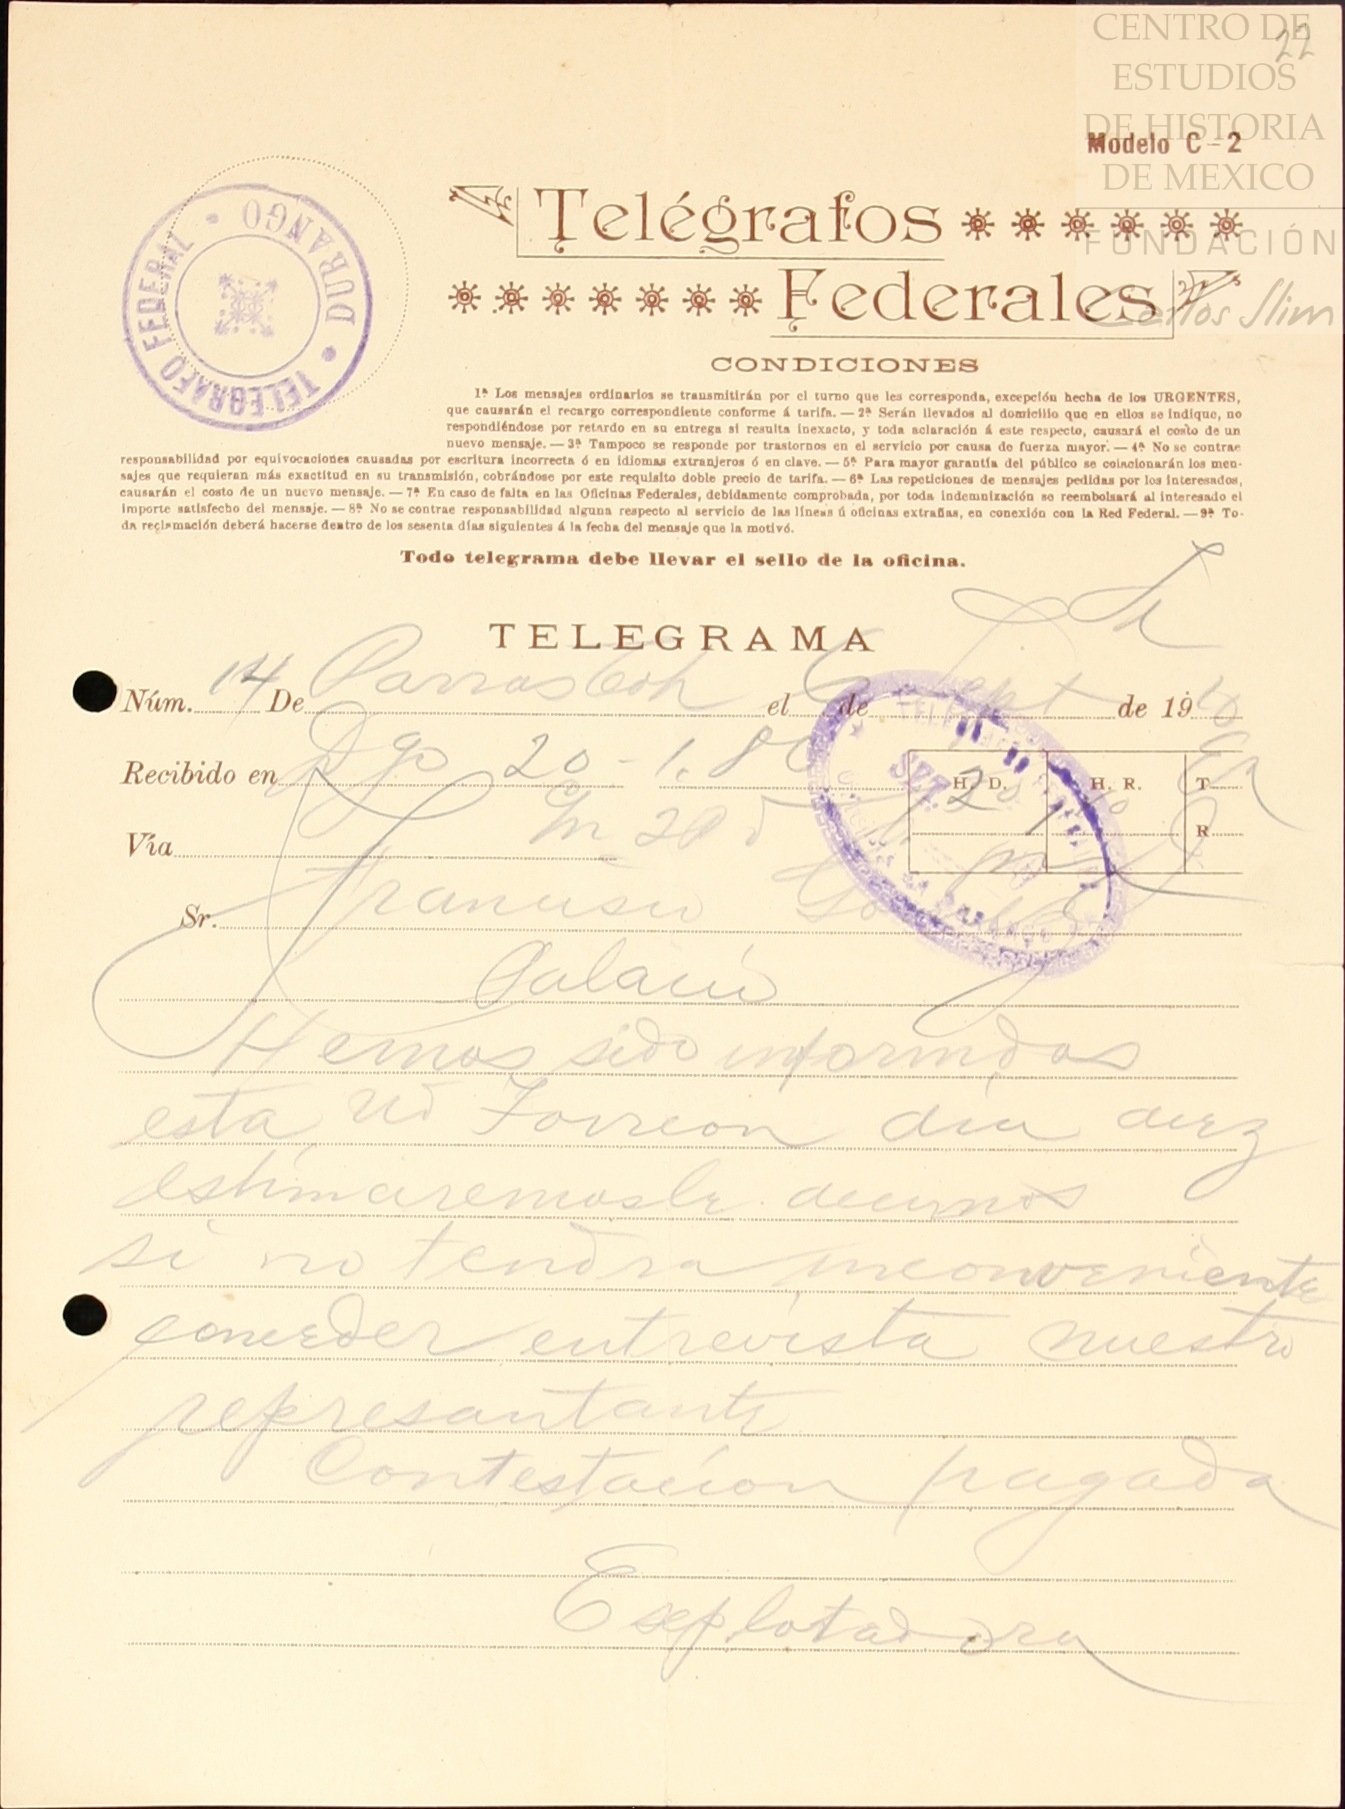 CENTRO DE
ESTUDIOS
DE HISTORIA
DE MEXICO
FUNDACIÓN
Carlos Slim
22
Modelo C-2
TELEGRAFO FEDERAL * DURANGO *
Telégrafos
Federales
CONDICIONES
1ª Los mensajes ordinarios se transmitirán por el turno que les corresponda, excepción hecha de los URGENTES,
que causarán el recargo correspondiente conforme á tarifa. — 2ª Serán llevados al domicilio que en ellos se indique, no
respondiéndose por retardo en su entrega si resulta inexacto, y toda aclaración á este respecto, causará el costo de un
nuevo mensaje. — 3ª Tampoco se responde por trastornos en el servicio por causa de fuerza mayor. — 4ª No se contrae
responsabilidad por equivocaciones causadas por escritura incorrecta ó en idiomas extranjeros ó en clave. — 5ª Para mayor garantía del público se colacionarán los men-
sajes que requieran más exactitud en su transmisión, cobrándose por este requisito doble precio de tarifa. — 6ª Las repeticiones de mensajes pedidas por los interesados,
causarán el costo de un nuevo mensaje. — 7ª En caso de falta en las Oficinas Federales, debidamente comprobada, por toda indemnización se reembolsará al interesado el
importe satisfecho del mensaje. — 8ª No se contrae responsabilidad alguna respecto al servicio de las líneas ú oficinas extrañas, en conexión con la Red Federal. — 9ª To-
da reclamación deberá hacerse dentro de los sesenta días siguientes á la fecha del mensaje que la motivó.
Todo telegrama debe llevar el sello de la oficina.
TELEGRAMA
Núm. 14 De Parras Coh el 6 de Sept de 1910
Recibido en Dgo 20 - 1.80
H. D. H. R. T
Vía R
Sr. Francisco
Palacio
Hemos sido informados
esta Ud Torreon dia diez
estimaremosle decirnos
si no tendra inconveniente
conceder entrevista nuestro
represantante
Contestacion pagada
Esplotadora